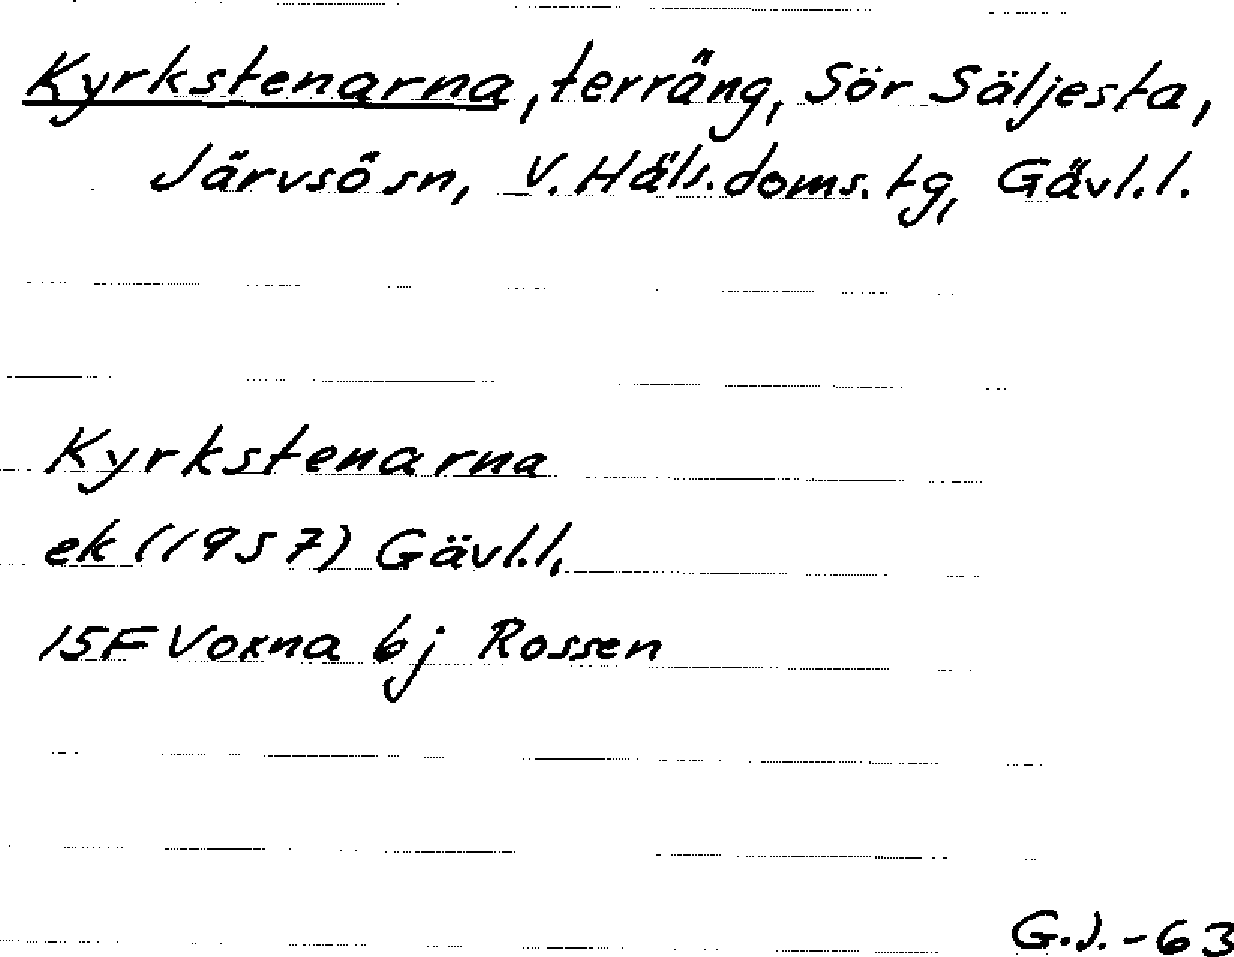 Kyrkstenarna, terräng, Sör Säljesta,
Järvsö sn, V. Häls. doms. tg, Gävl. l.
Kyrkstenarna
ek (1957) Gävl. l,
15F Voxna 6j Rossen
G.J. - 63